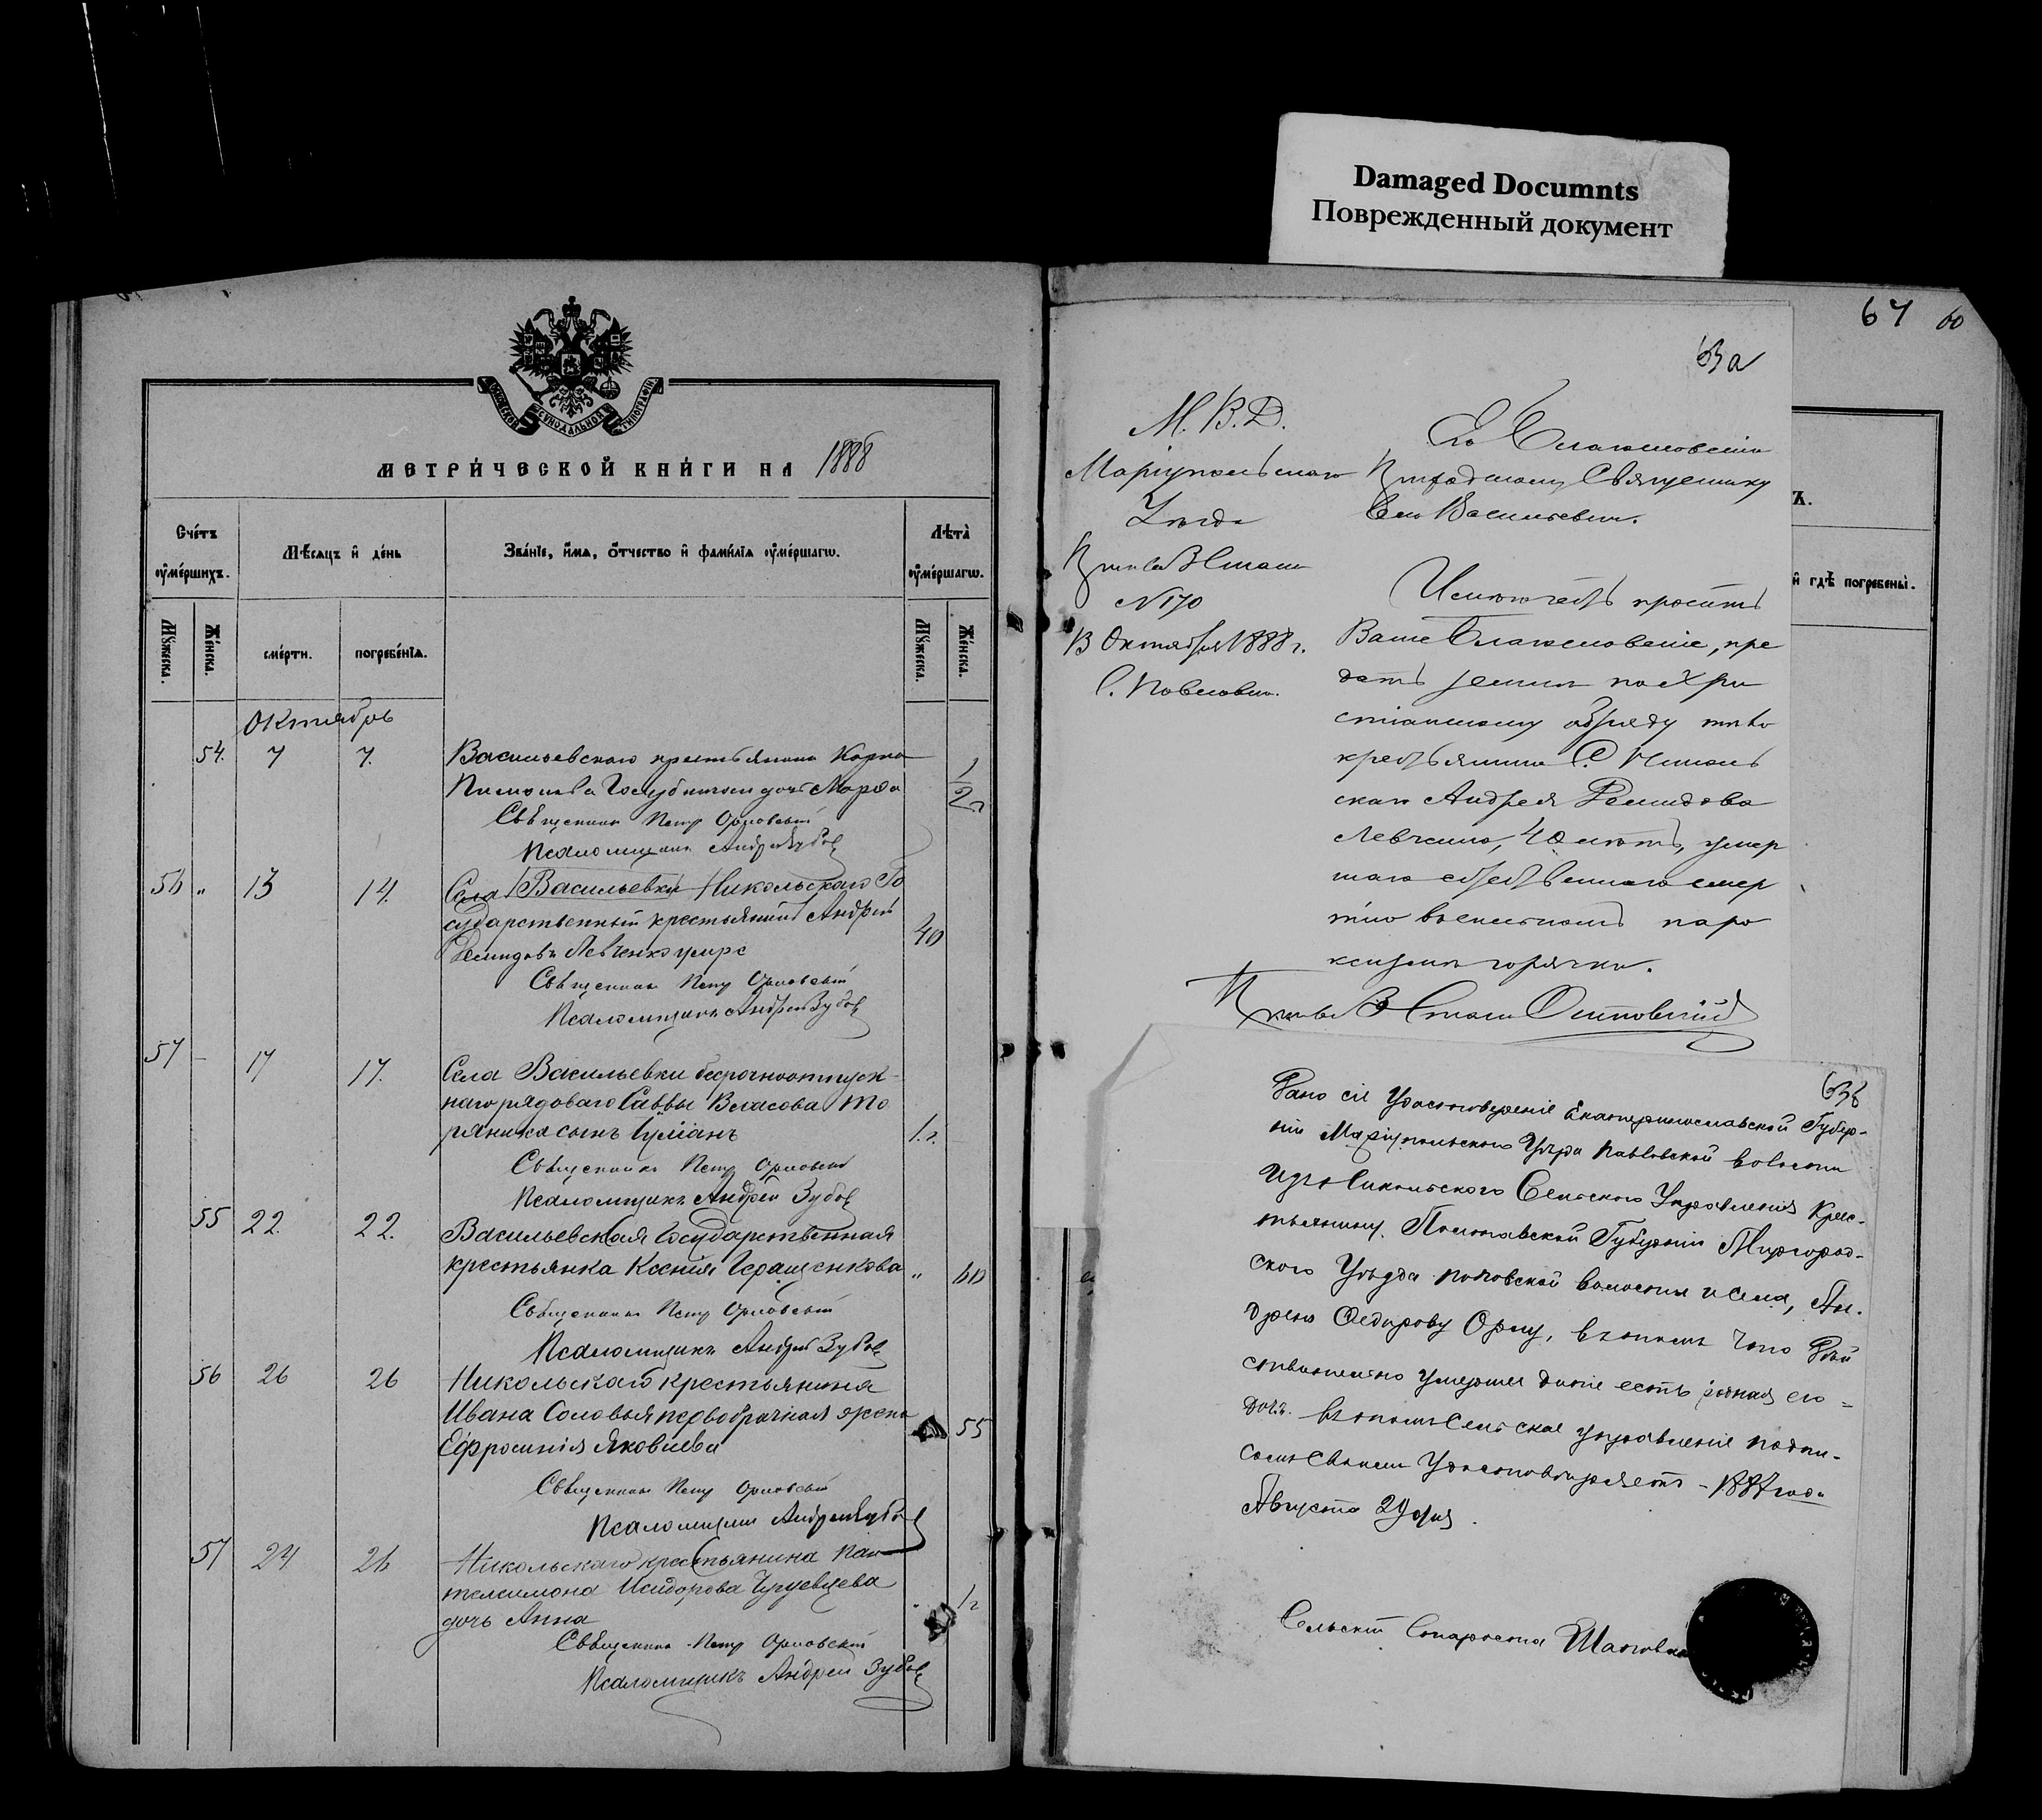 Damaged Documnts
Поврежденный документ
МОСКОВСКОЙ СѴНОДАЛЬНОЙ ТИПОГРАФІИ
МЕТРИЧЕСКОЙ КНИГИ НА 1888
Счетъ умершихъ.
Мѣсяцъ и день
Званіе, имя, отчество и фамилія умершагω.
Лѣта умершагω.
Мужеска.
Женска.
смерти.
погребенія.
Мужеска.
Женска.
Октябрь
54. 7 7. Васильевскаго крестьянина Карпа
Голубничаго дочь Марѳа 1/2 г
Священникъ Петр Орловскій
Псаломщикъ Андрей Зубов
56 " 13 14. Села Васильевки Никольскаго Го
сударственный крестьянинъ Андрей 40
Демидовъ Левченко умре
Священникъ Петр Орловскій
Псаломщикъ Андрей Зубов
57 – 17 17. Села Васильевки безсрочноотпуск-
наго рядоваго Саввы Власова То
ряника сынъ Іуліанъ 1. г.
Священникъ Петр Орловскій
Псаломщикъ Андрей Зубов
55 22. 22. Васильевская Государственная
крестьянка Ксенія Геращенкова " 60
Священникъ Петр Орловскій
Псаломщикъ Андрей Зубов
56 26 26 Никольскаго крестьянина
Ивана Соловья первобрачная жена 55
Ефросинія Яковлева
Священникъ Петр Орловскій
Псаломщикъ Андрей Зубов
57 24 26 Никольскаго крестьянина Пан
телеимона Исидорова Чугуевцева 1 г
дочь Анна
Священникъ Петр Орловскій
Псаломщикъ Андрей Зубов
67 60
й гдѣ погребены.
63а
М. В. Д.
Маріупольскаго
Уѣзда
Пристава 3 Стана
N 170
13 Октября 1888 г.
С. Павловка.
Его Благословенію
Приходскому Священнику
Села Васильевки.
Имѣю честь просить
Ваше Благословеніе, пре
дать землѣ по Хри
стіанскому обряду тѣло
крестьянина С. Николь
скаго Андрея Демидова
Левченко, 40 лѣтъ, умер
шаго естественною смер
тію вслѣдствіе паро
ксизма горячки.
Приставъ 3 Стана Осиповскій
63б
Дано сіе Удостовереніе Екатеринославской Губер-
ніи Маріупольскаго Уѣзда Павловской волости
Изъ Никольского Сельского Управленія Крес-
тьянину Полтавской Губерніи Миргород-
ского Уѣзда Поповской волости и села, Ан-
дрею Федорову Орлу, въ томъ что Дѣй
ствительно умершее дитіе есть родная его
дочь. въ томъ Сельское управленіе подпи-
сомъ Своимъ Удостовѣряетъ - 1887 года
Августа 29 дня.
Сельскій Староста